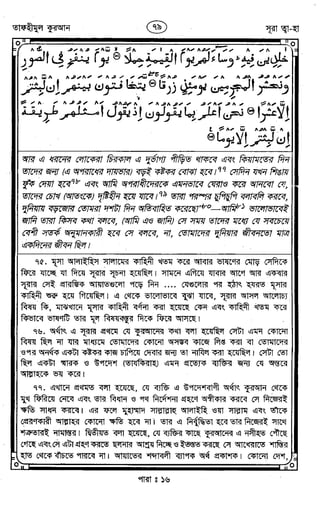 তাফহীমুল কুরআন
৭৯
সূরা ত্বা-হা
خٰلِدِيْنَ فِيْهِ ۖ وَسَاءَ لَهُمْ يَوْمَ الْقِيٰمَةِ حِمْلًا ۝ يَوْمَ يُنْفَخُ فِى الصُّوْرِ
وَنَحْشُرُ الْمُجْرِمِيْنَ يَوْمَئِذٍ زُرْقًا ۝ يَتَخَافَتُوْنَ بَيْنَهُمْ اِنْ لَّبِثْتُمْ
اِلَّا عَشْرًا ۝ نَحْنُ اَعْلَمُ بِمَا يَقُوْلُوْنَ اِذْ يَقُوْلُ اَمْثَلُهُمْ طَرِيْقَةً
اِنْ لَّبِثْتُمْ اِلَّا يَوْمًا ۝
আর এ ধরনের লোকেরা চিরকাল এ দুর্ভাগ্য পীড়িত থাকবে এবং কিয়ামতের দিন
তাদের জন্য (এ অপরাধের দায়ভার) বড়ই কষ্টকর বোঝা হবে।৭৭ সেদিন যখন শিংগায়
ফুঁক দেয়া হবে৭৮ এবং আমি অপরাধীদেরকে এমনভাবে ঘেরাও করে আনবো যে,
তাদের চোখ (আতংকে) দৃষ্টিহীন হয়ে যাবে।৭৯ তারা পরস্পর চুপিচুপি বলাবলি করবে,
দুনিয়ায় বড়জোর তোমরা দশটা দিন অতিবাহিত করেছো৮০—আমি৮১ ভালোভাবেই
জানি তারা কিসব কথা বলবে, (আমি এও জানি) সে সময় তাদের মধ্যে যে সবচেয়ে
বেশী সতর্ক অনুমানকারী হবে সে বলবে, না, তোমাদের দুনিয়ার জীবনতো মাত্র
একদিনের জীবন ছিল।
৭৫. মূসা আলাইহিস সালামের কাহিনী খতম করে আবার ভাষণের মোড় সেদিকে
ফিরে যাচ্ছে যা দিয়ে সূরার সূচনা হয়েছিল। সামনে এগিয়ে যাবার আগে আর একবার
সূরার সেই প্রারম্ভিক আয়াতগুলো পড়ে নিন
কাহিনী শুরু হয়ে গিয়েছিল। এ থেকে ভালোভাবে বুঝা যাবে, সূরার আসল আলোচ্য
বিষয় কি, মাঝখানে মূসার কাহিনী বর্ণনা করা হয়েছে কেন এবং কাহিনী খতম করে
কিভাবে ভাষণটি তার মূল বিষয়বস্তুর দিকে ফিরে আসছে।
৭৬. অর্থাৎ এ সূরার প্রথমে যে কুরআনের কথা বলা হয়েছিল সেটা এমন কোনো
বিষয় ছিল না যার মাধ্যমে তোমাদের কোনো অসম্ভব কাজে লিপ্ত করা বা তোমাদের
ওপর অনর্থক একটা কষ্টকর কাজ চাপিয়ে দেবার জন্য তা নাযিল করা হয়েছিল। সেটা তো
ছিল একটা স্মারক ও উপদেশ (তাযকিরাহ) এমন প্রত্যেক ব্যক্তির জন্য যে অন্তরে
আল্লাহকে ভয় করে।
৭৭. এখানে প্রথমত বলা হয়েছে, যে ব্যক্তি এ উপদেশবাণী অর্থাৎ কুরআন থেকে
মুখ ফিরিয়ে নেবে এবং তার বিধান ও পথ নির্দেশনা গ্রহণে অস্বীকার করবে সে নিজেরই
ক্ষতি সাধন করবে। এর ফলে মুহাম্মাদ সাল্লাল্লাহু আলাইহি ওয়া সাল্লাম এবং তাঁকে
প্রেরণকারী আল্লাহর কোনো ক্ষতি হবে না। তার এ নির্বুদ্ধিতা হবে তার নিজেরই সাথে
শত্রুতারই নামান্তর। দ্বিতীয়ত বলা হয়েছে, যে ব্যক্তির কাছে কুরআনের এ নসীহত পৌঁছে
গেছে এবং সে এটা গ্রহণ করতে ছলনার আশ্রয় নিচ্ছে ও ইতস্তত করছে সে আখেরাতে শাস্তির
হাত থেকে বাঁচতে পারবে না। আয়াতের শব্দাবলী ব্যাপক অর্থ প্রকাশক। কোনো দেশ,
পারা : ১৬